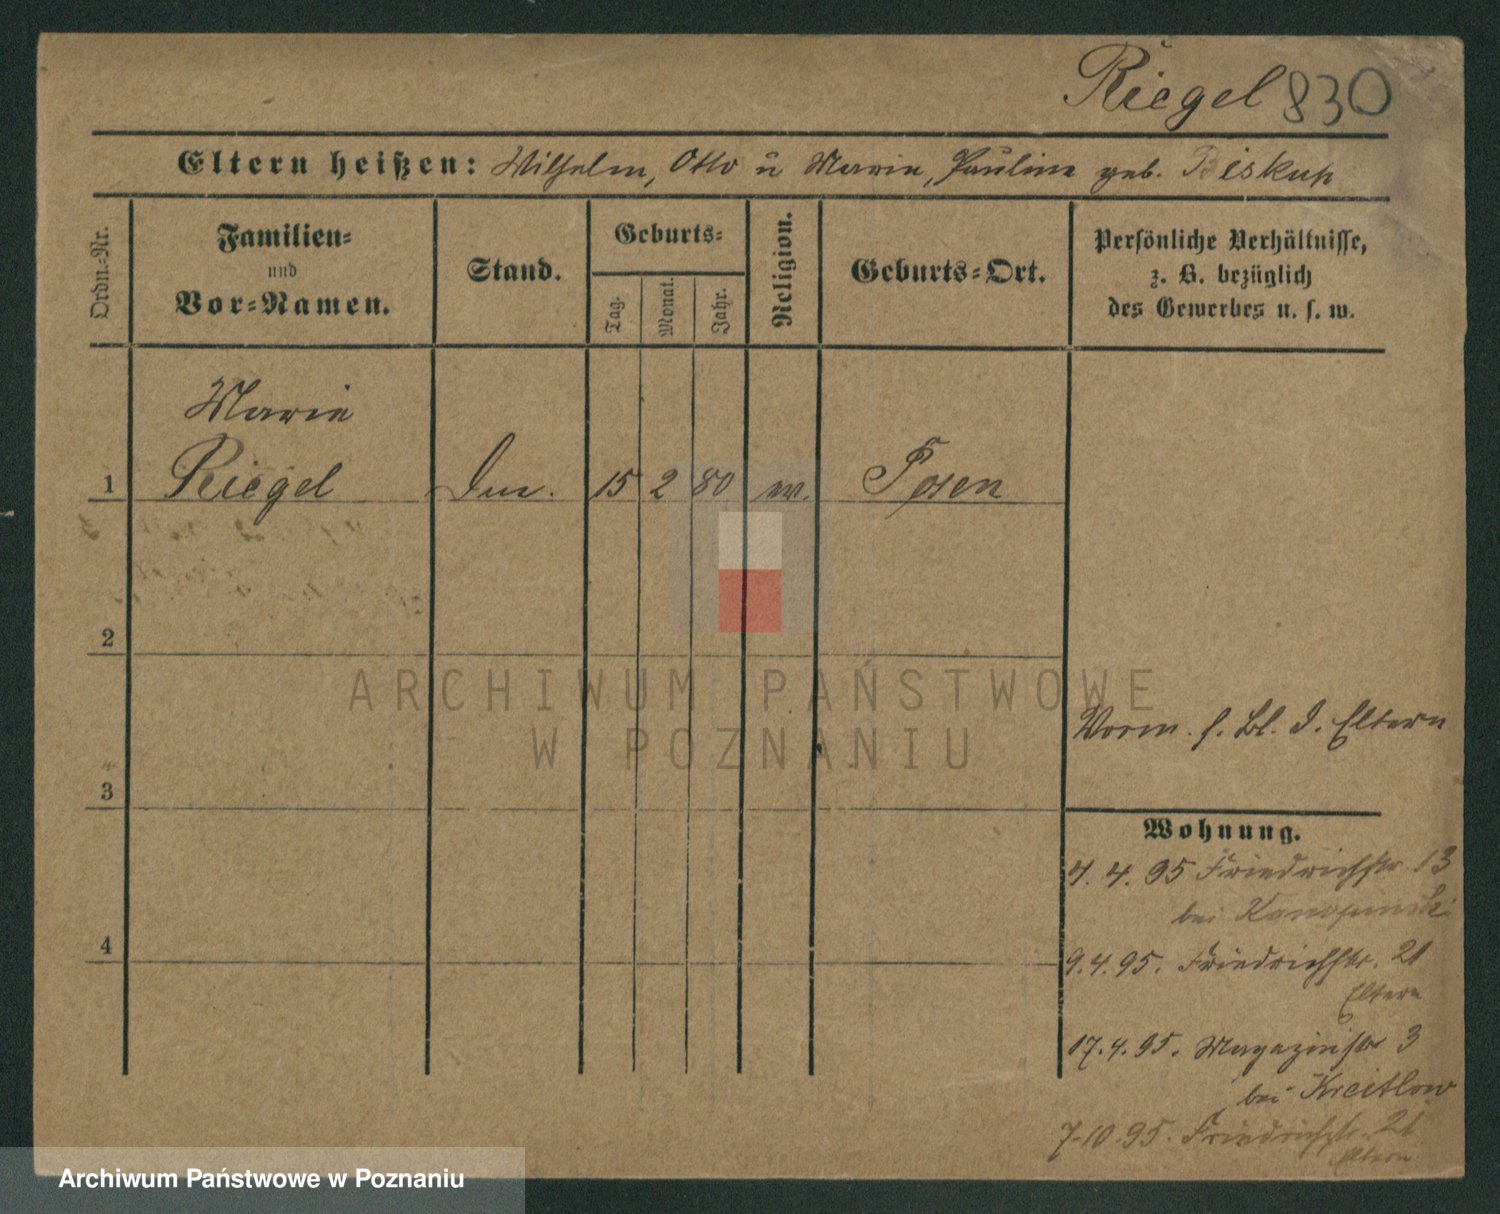 Riegel 830
Eltern heißen: Wilhelm, Otto u Marie, Pauline geb. Biskup
Ordn.-Nr.
Familien-
und
Vor-Namen.
Stand.
Geburts-
Tag.
Monat.
Jahr.
Religion.
Geburts-Ort.
Persönliche Verhältnisse,
z. B. bezüglich
des Gewerbes u. s. w.
Marie
1 Riegel 15 2 80 Posen
2
ARCHIWUM PAŃSTWOWE
W POZNANIU
Vorm. s. Bl. d. Eltern
3
Wohnung.
4. 4. 95 Friedrichstr 13
bei
4
9.4.95. Friedrichstr. 21
Eltern
17.4.95. Magazinstr 3
bei Kreitlow
7.10.95. Friedrichstr. 21
Eltern
Archiwum Państwowe w Poznaniu